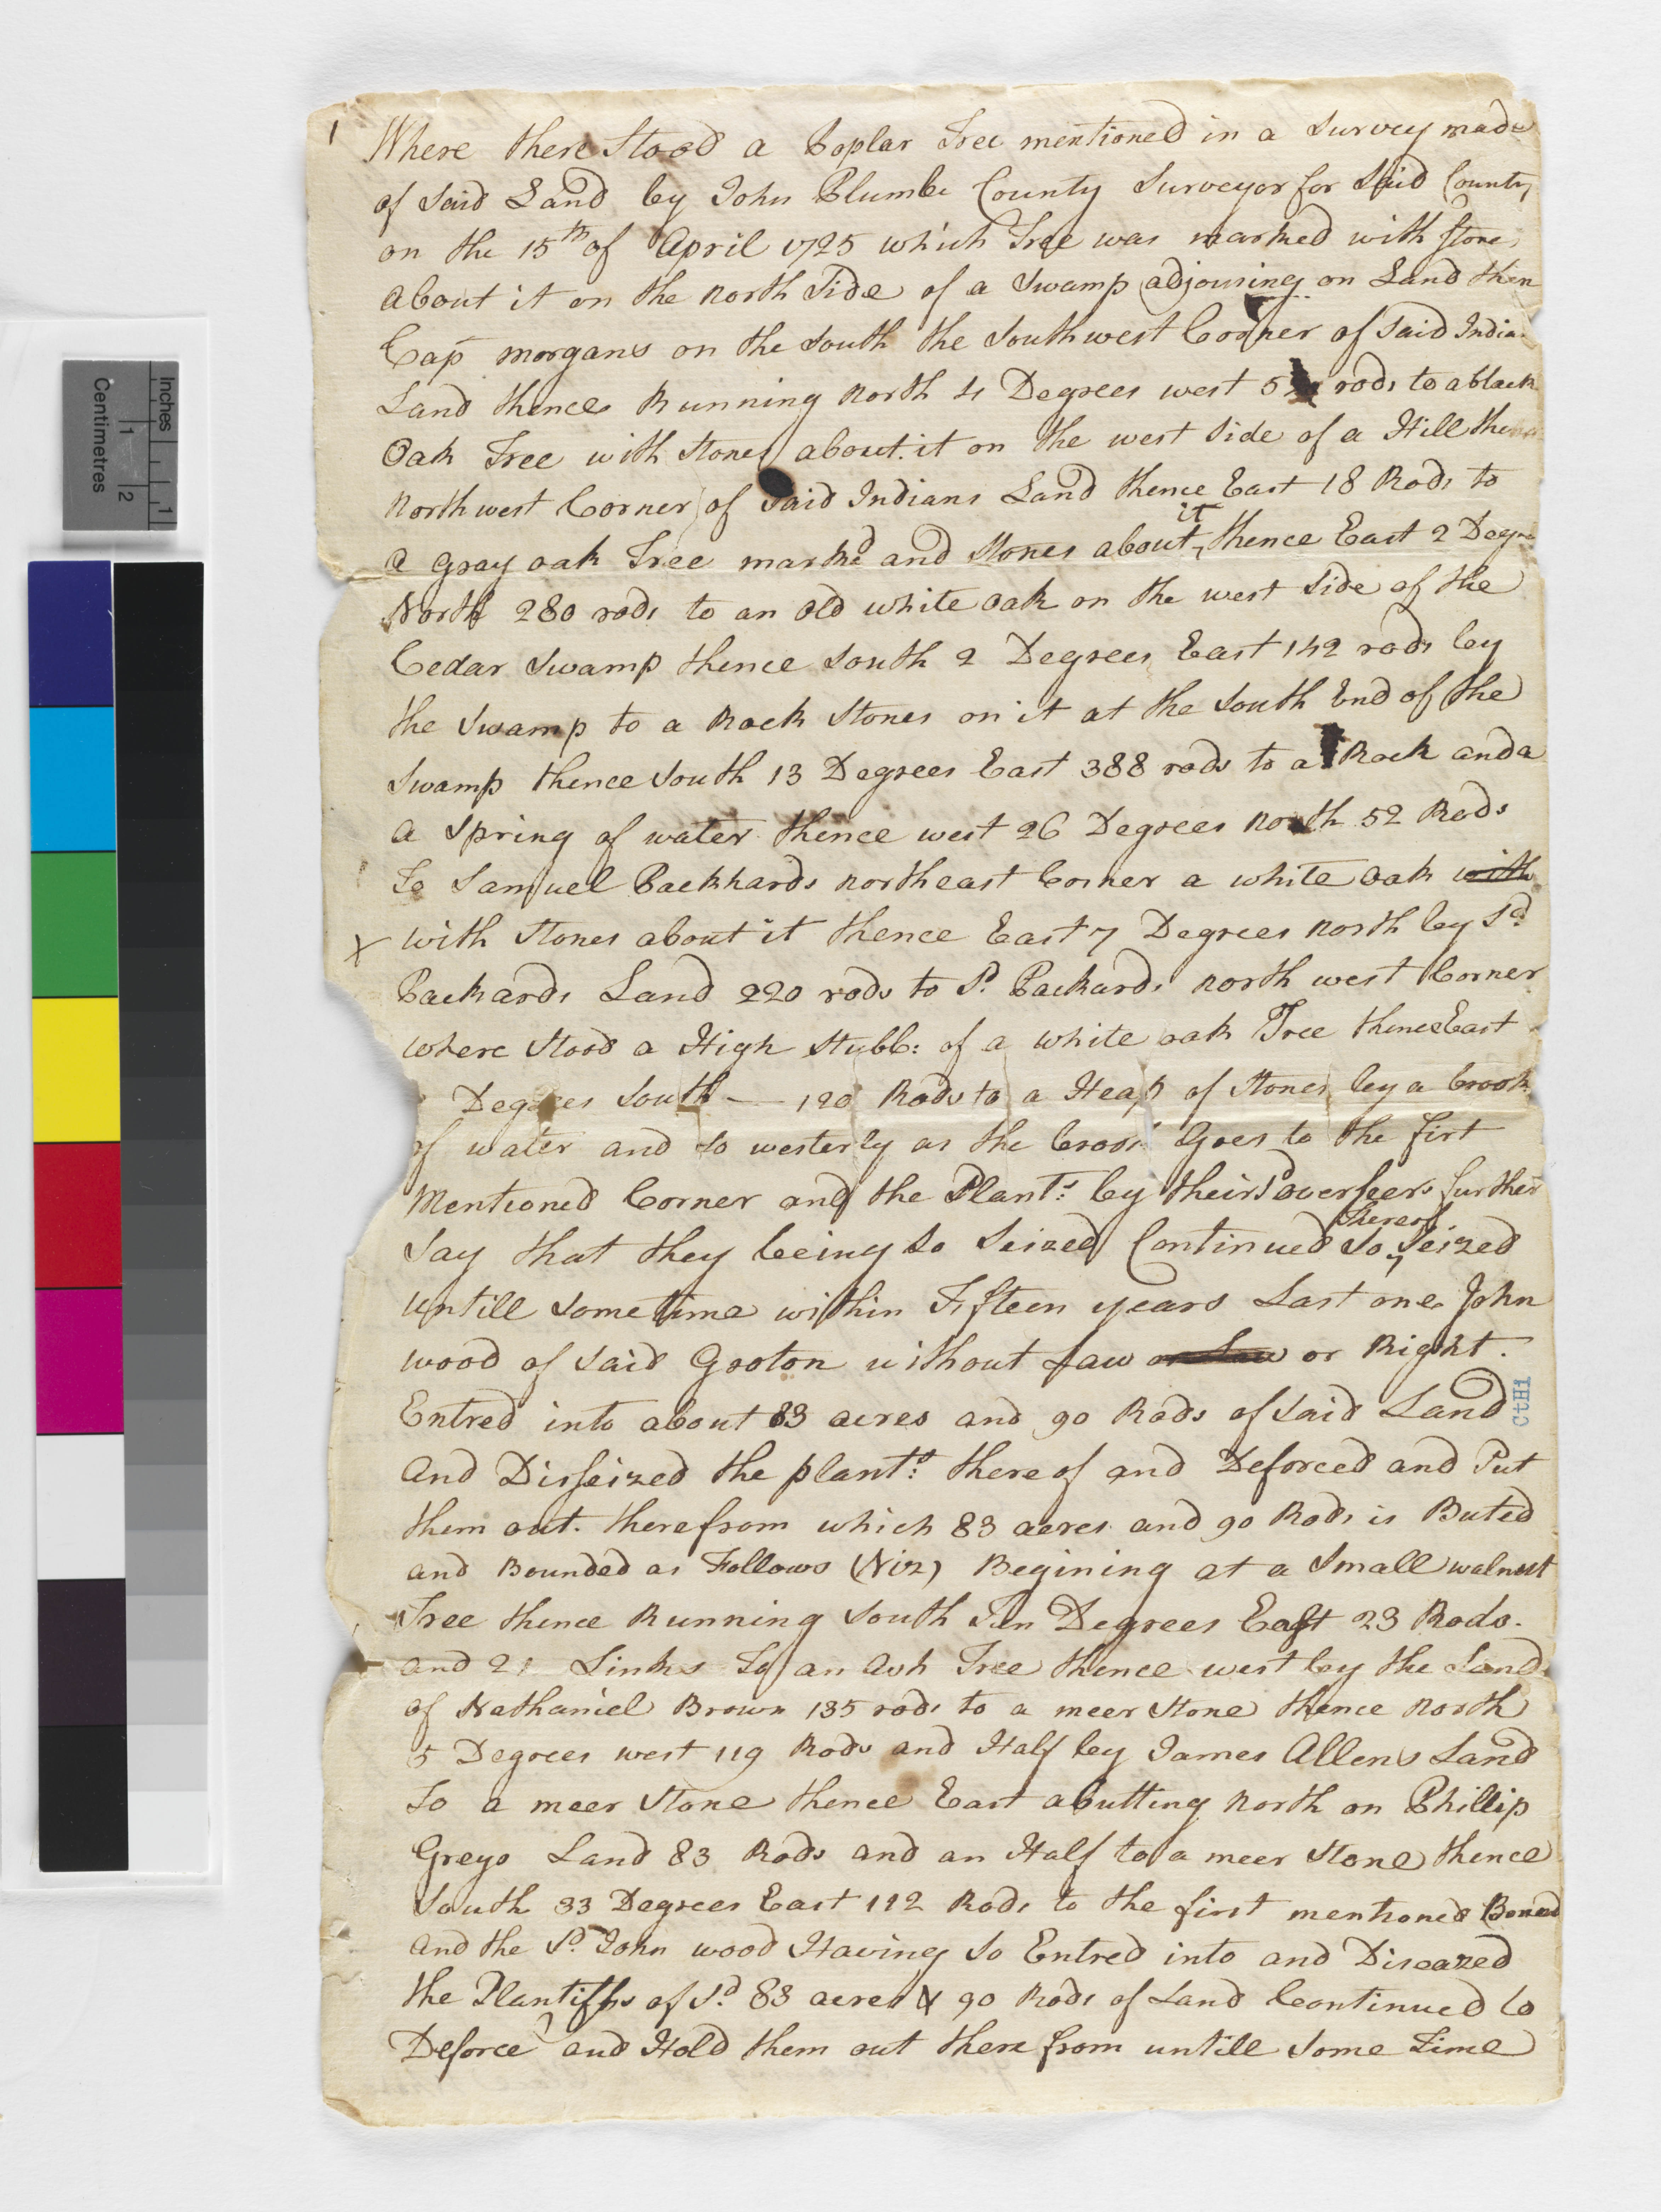 1 Where there Stood a Poplar Tree mentioned in a Survey made
of Said Land by John Plumbe County Surveyor for Said County
on the 15th of April 1725 which Tree was marked with Stone
About it on the north Side of a Swamp adjouring on Land then
Cap morgans on the South the Southwest Corner of Said India
Land thence Running north 4 Degrees west 5 rods to a black
Oak Tree with Stones about it on the west Side of a Hill
northwest Corner of Said Indians Land thence East 18 Rods to
a gray oak Tree markd and Stones about it thence East 2 Degre
North 280 rods to an old white oak on the west Side of the
Cedar Swamp thence South 2 Degrees East 142 rods by
the Swamp to a Rock Stones on it at the South End of the
Swamp thence South 13 Degrees East 388 rods to a Rock and a
a Spring of water thence west 26 Degrees north 52 Rods
To Samuel Packhards northeast Corner a white oak with
X with Stones about it thence East 7 Degrees north by Sd
Packards Land 220 rods to Sd Packards north west Corner
where Stood a High Stubb: of a white oak Tree thence East
Degrees South — 120 Rods to a Heap of Stones by a brook
of water and So westerly as the brook Goes to the firt
Mentioned Corner and the Plants: by their Sd overseers further
Say that they being So Seized Continued So thereof Seized
untill Sometime within Fifteen years Last one John
wood of Said Groton without Law or Law or Right.
Entred into about 83 acres and 90 Rods of Said Land
And Disseized the plants: thereof and Deforced and Put
them out. therefrom which 83 acres and 90 Rods is Buted
and Bounded as Follows (Viz) Begining at a Small walnut
Tree thence Running South Ten Degrees East 23 Rods.
and 21 Links To an Ash Tree thence west by the Land
of Nathaniel Brown 135 rods to a meer Stone thence north
5 Degrees west 119 Rods and Half by James Allens Land
To a meer Stone thence East abutting north on Phillip
Greys Land 83 Rods and an Half to a meer Stone thence
South 33 Degrees East 112 Rods to the first mentioned Bound
and the Sd John wood Having So Entred into and Diseazed
the Plantiffs of Sd 83 acres & 90 Rods of Land Continued to
Deforce and Hold them out there from untill Some Time
CtHi
Inches
1
1
2
Centimetres